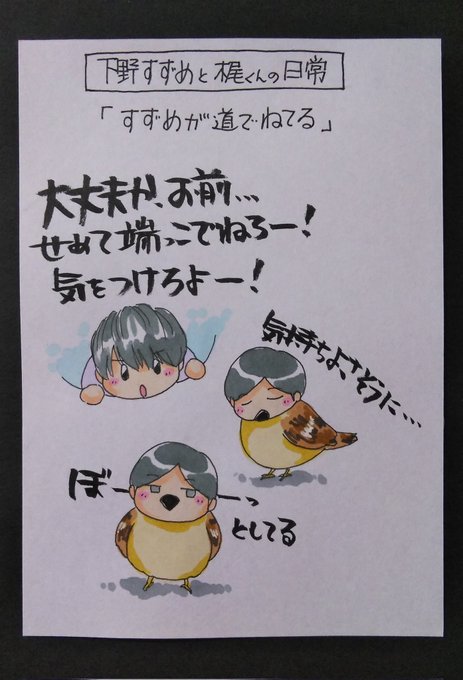 下野すずめと梶くんの日常
「すずめが道でねてる」
大丈夫か、お前…
せめて端っこでねろー!
気をつけろよー!
気持ちよさそうに…
ぼーーっ
としてる